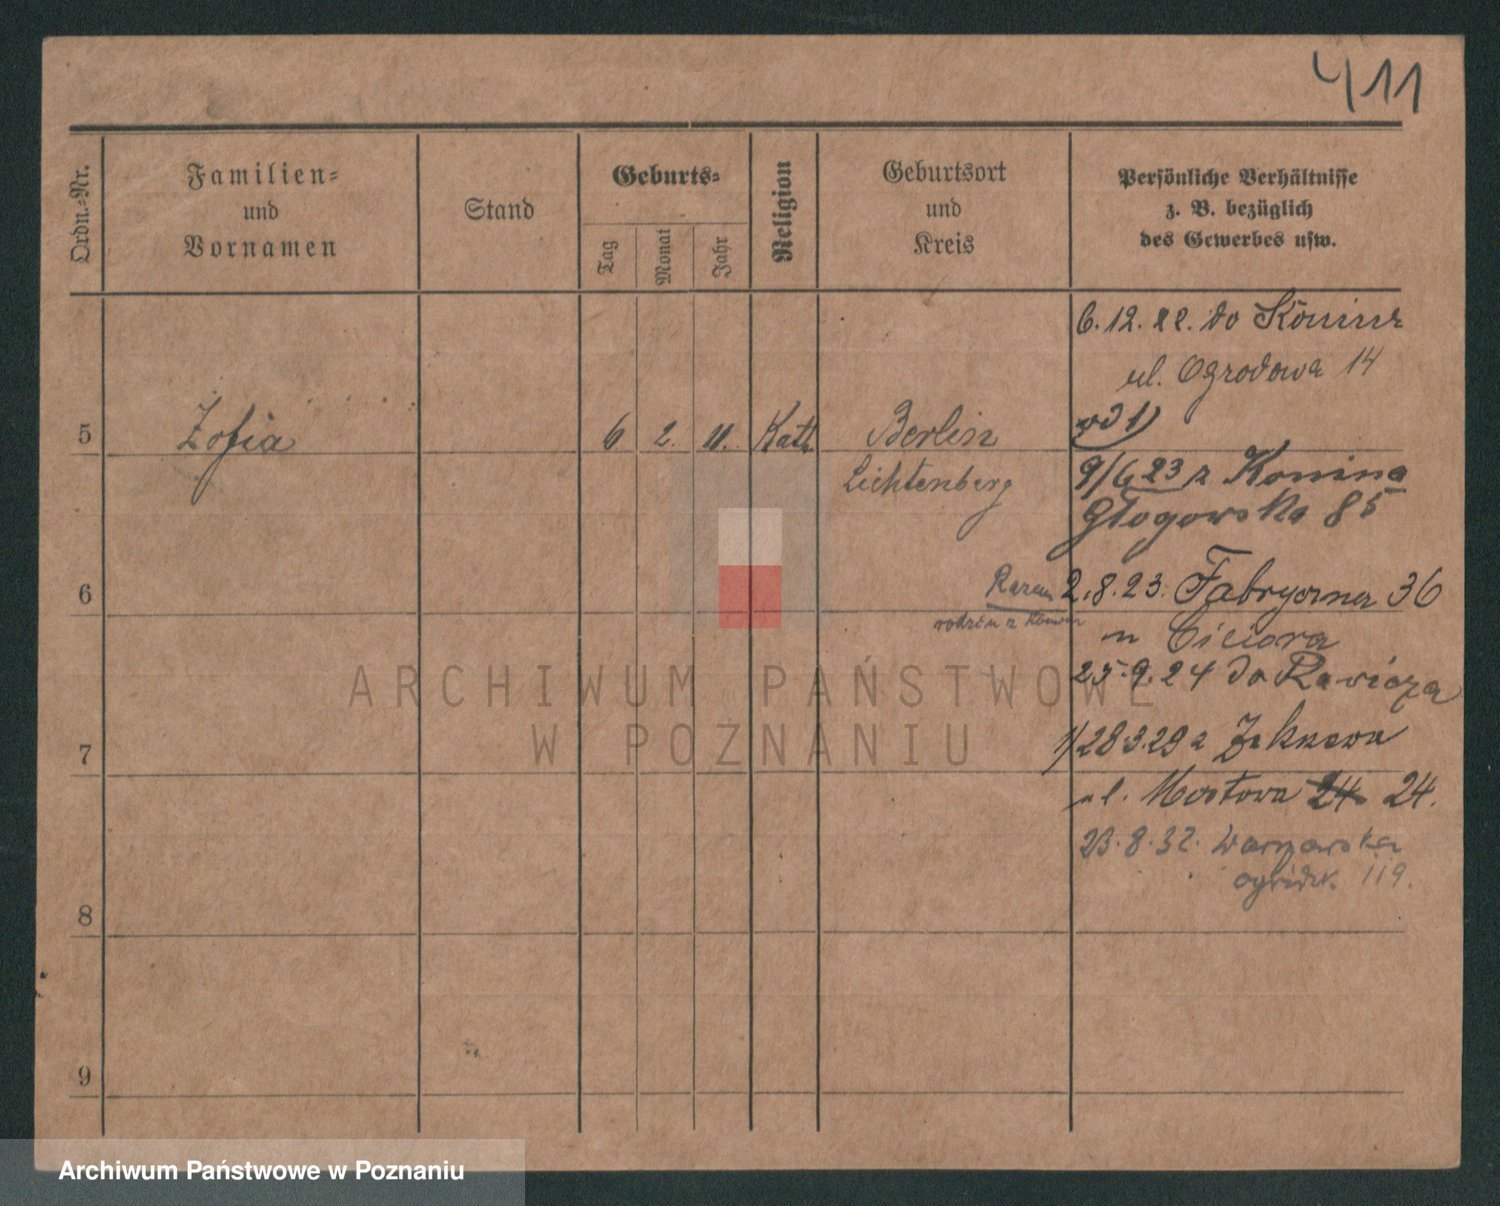 411
Ordn.-Nr.
Familien-
und
Vornamen
Stand
Geburts-
Tag
Monat
Jahr
Religion
Geburtsort
und
Kreis
Persönliche Verhältnisse
z. B. bezüglich
des Gewerbes usw.
6.12.22. do Konina
ul. Ogrodowa 14
5 Zofia 6 2. 11. Kath Berlin
od 1)
Lichtenberg
9/6 23 z Konina
Głogowska 85
6
Razem 2.8.23. Fabryczna 36
rodzina z
25.9.24 do Rawicza
7
1) 28 3.29 z
ul. Mostowa 24 24.
23.8.32. Warszawska
119.
8
9
ARCHIWUM PAŃSTWOWE
W POZNANIU
Archiwum Państwowe w Poznaniu